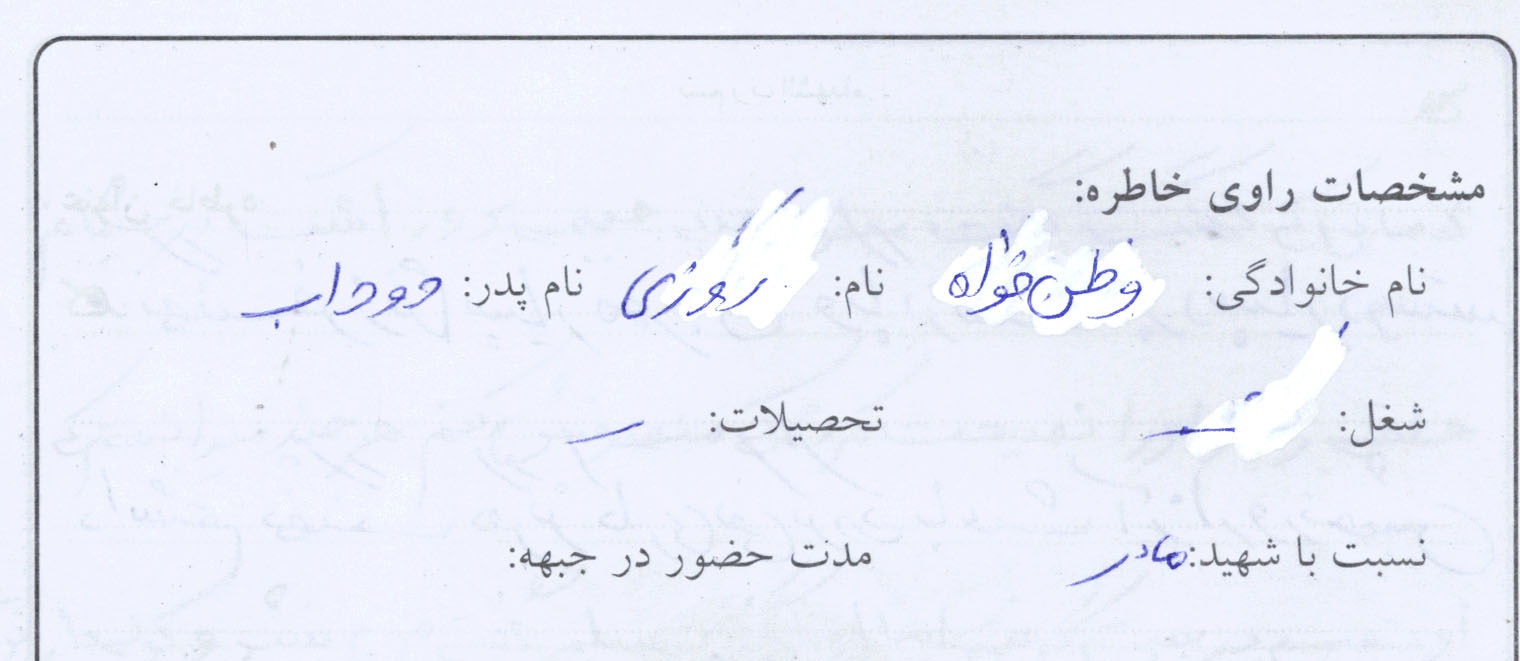 مشخصات راوی خاطره:
نام خانوادگی: وطن خواه نام: روزی نام پدر: دوداب
شغل: ـ تحصیلات: ـ
نسبت با شهید: مادر مدت حضور در جبهه: